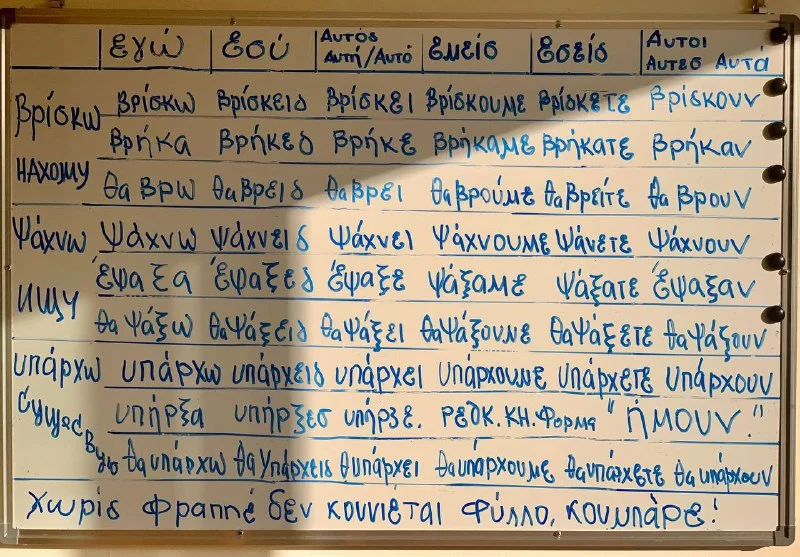 εγώ εσύ Αυτός Αυτή/Αυτό εμείς εσείς Αυτοι Αυτες Αυτά
βρίσκω βρίσκω βρίσκεις βρίσκει βρίσκουμε βρίσκετε βρίσκουν
нахожу βρήκα βρήκες βρήκε βρήκαμε βρήκατε βρήκαν
θα βρω θα βρεις θα βρει θα βρούμε θα βρείτε θα βρουν
ψάχνω ψάχνω ψάχνεις ψάχνει ψάχνουμε ψάνετε ψάχνουν
ищу έψαξα έψαξες έψαξε ψάξαμε ψάξατε έψαξαν
θα ψάξω θα ψάξεις θα ψάξει θα ψάξουμε θα ψάξετε θα ψάξουν
υπάρχω υπάρχω υπάρχεις υπάρχει υπάρχουμε υπάρχετε υπάρχουν
существую υπήρξα υπήρξες υπήρξε. редк. кн. форма "ήμουν."
θα υπάρχω θα υπάρχεις θ υπάρχει θα υπάρχουμε θα υπάρχετε θα υπάρχουν
χωρίς φραππέ δεν κουνιέται φύλλο, κουμπάρε!